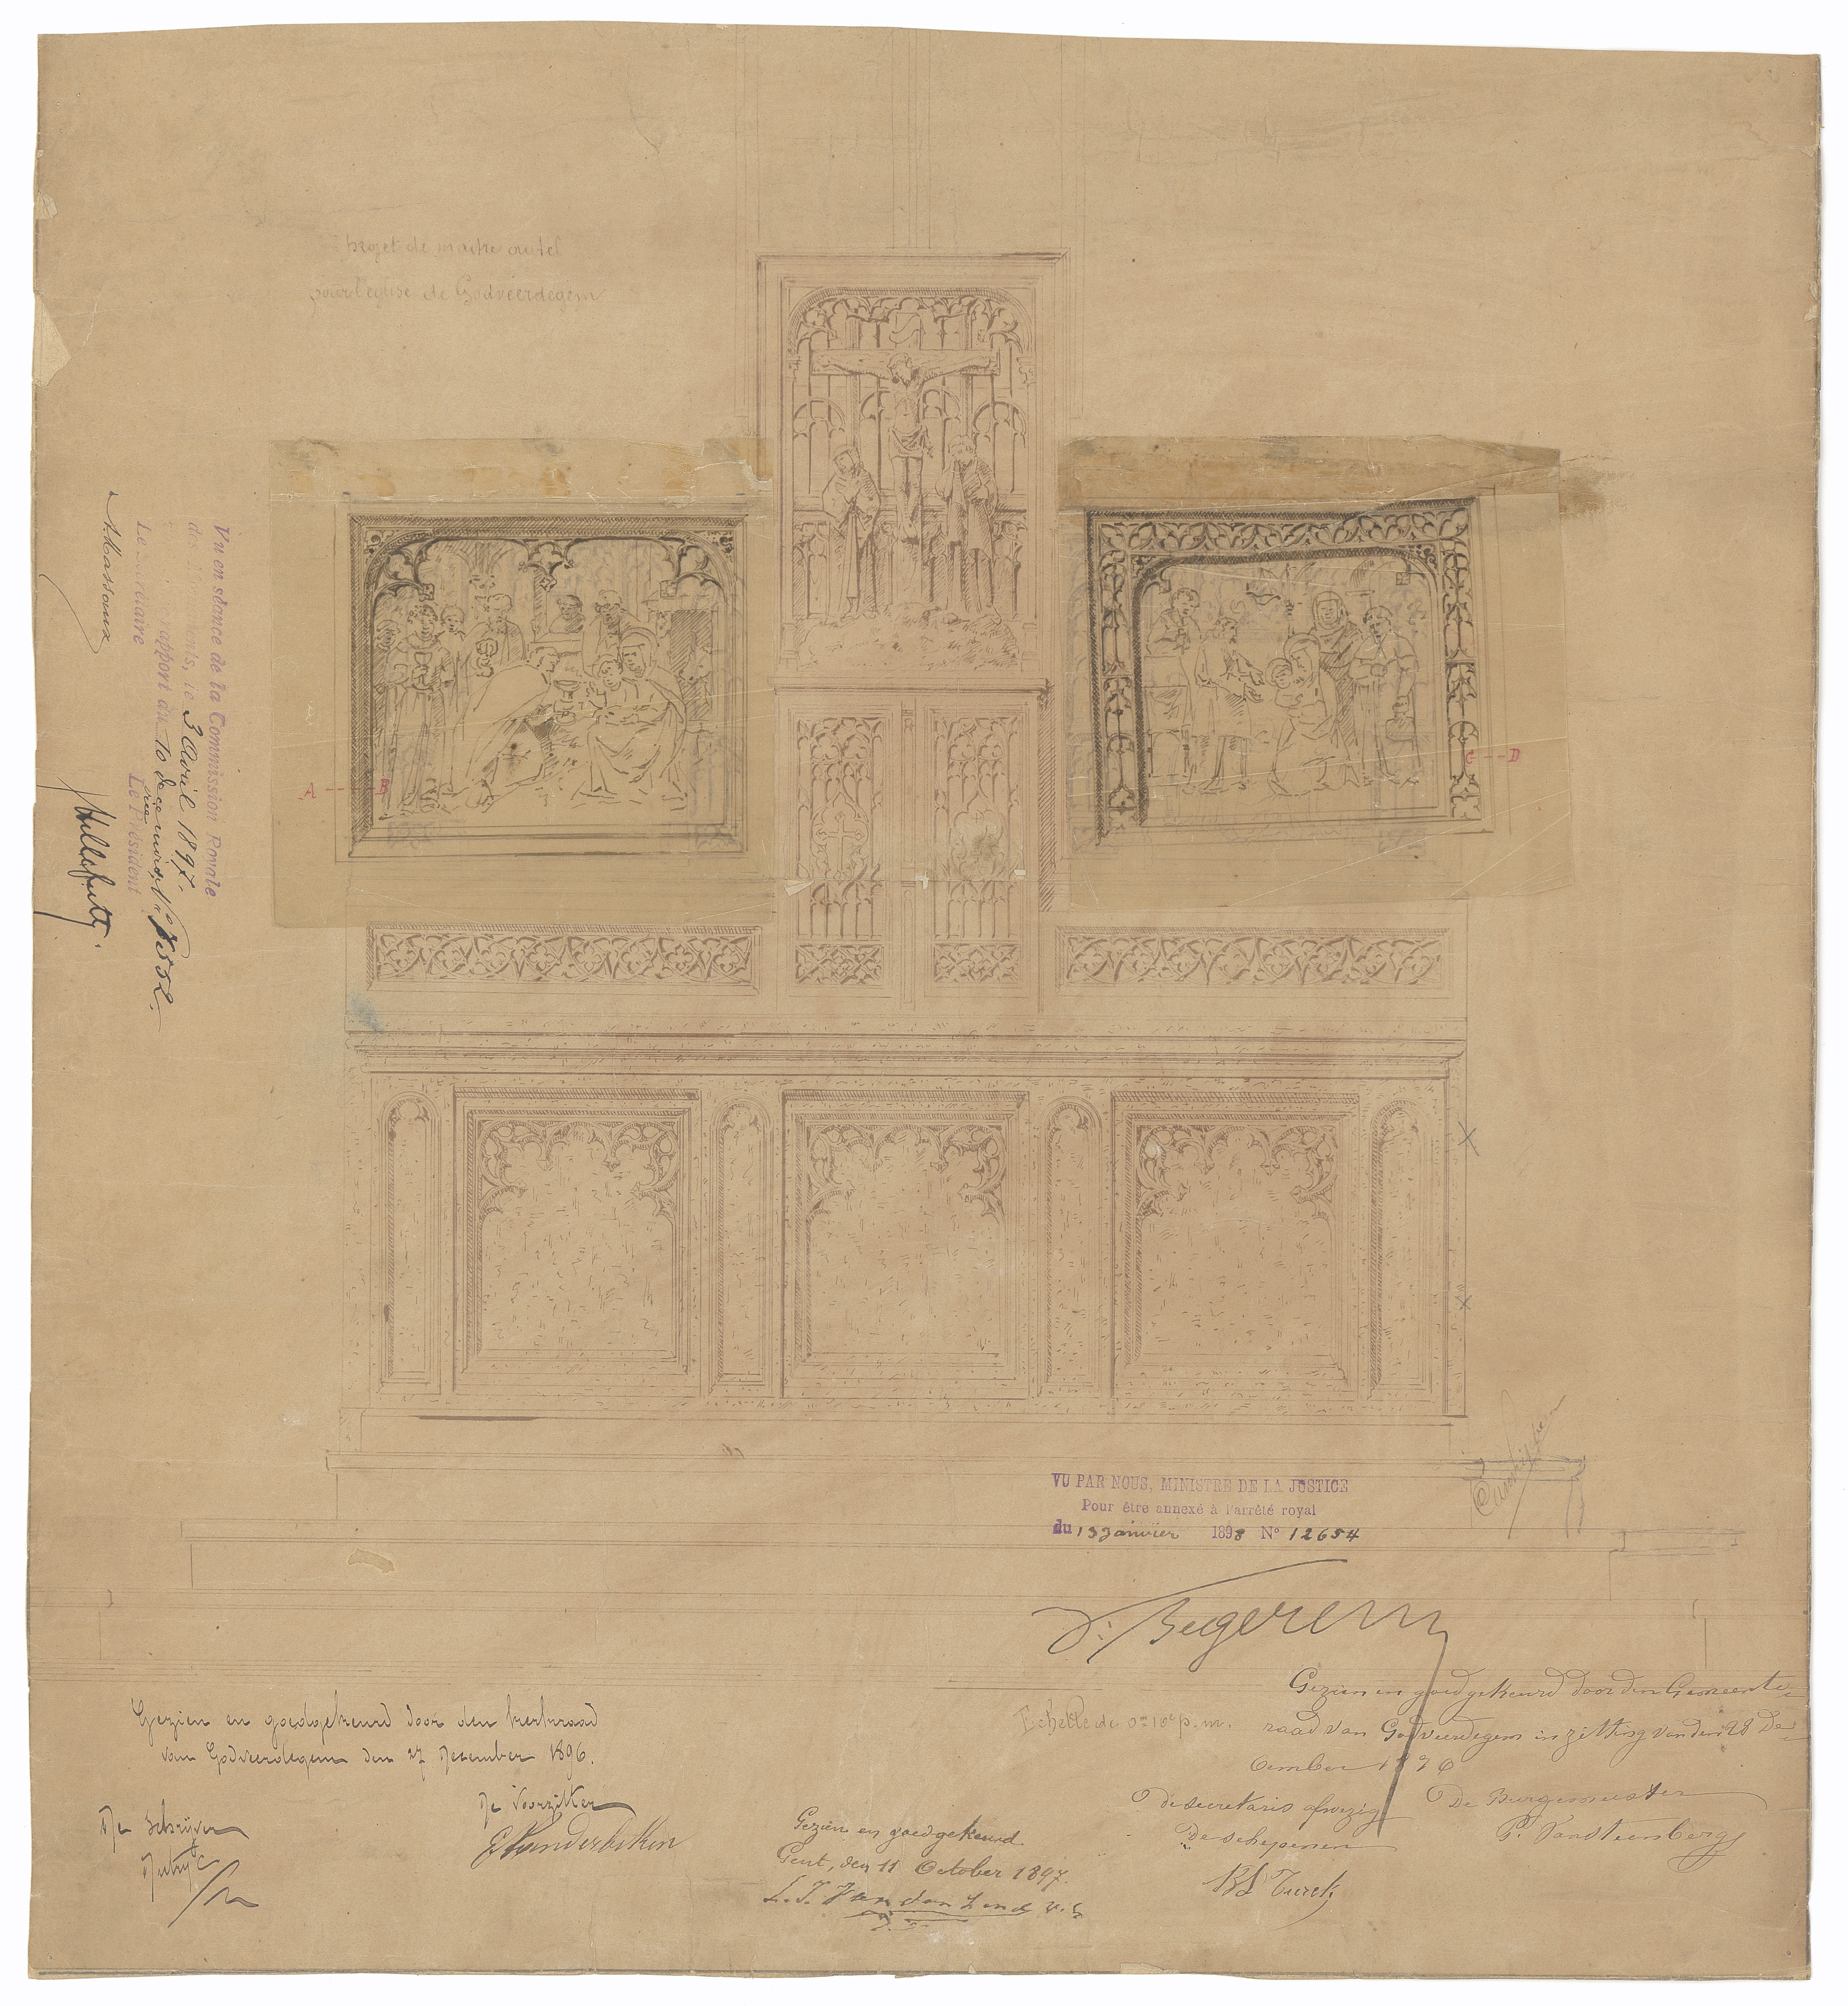 Projet de maitre autel
pour l'eglise de Godveerdegem
Vu en séance de la Commission Royale
des Monuments, le 3 Avril 1897.
rapport du 10 décembre N° 7552.
Le Secrétaire Le Président
A. Massaux
Helleputte.
A B
C D
VU PAR NOUS, MINISTRE DE LA JUSTICE
Pour être annexé à l'arrêté royal
du 13 Janvier 1898 N° 12654
V. Begerem
Echelle de 0m10c p. m.
Gezien en goedgekeurd door den kerkraad
van Godveerdegem den 27 December 1896.
De Schrijver
De Voorzitter
Gezien en goedgekeurd
Gent, den 11 October 1897.
Gezien en goedgekeurd door den Gemeente-
raad van Godveerdegem in zitting van den 28 De-
cember 1896
De secretaris afwezig De Burgemeester
De schepenen P. Vansteenberg
Turck